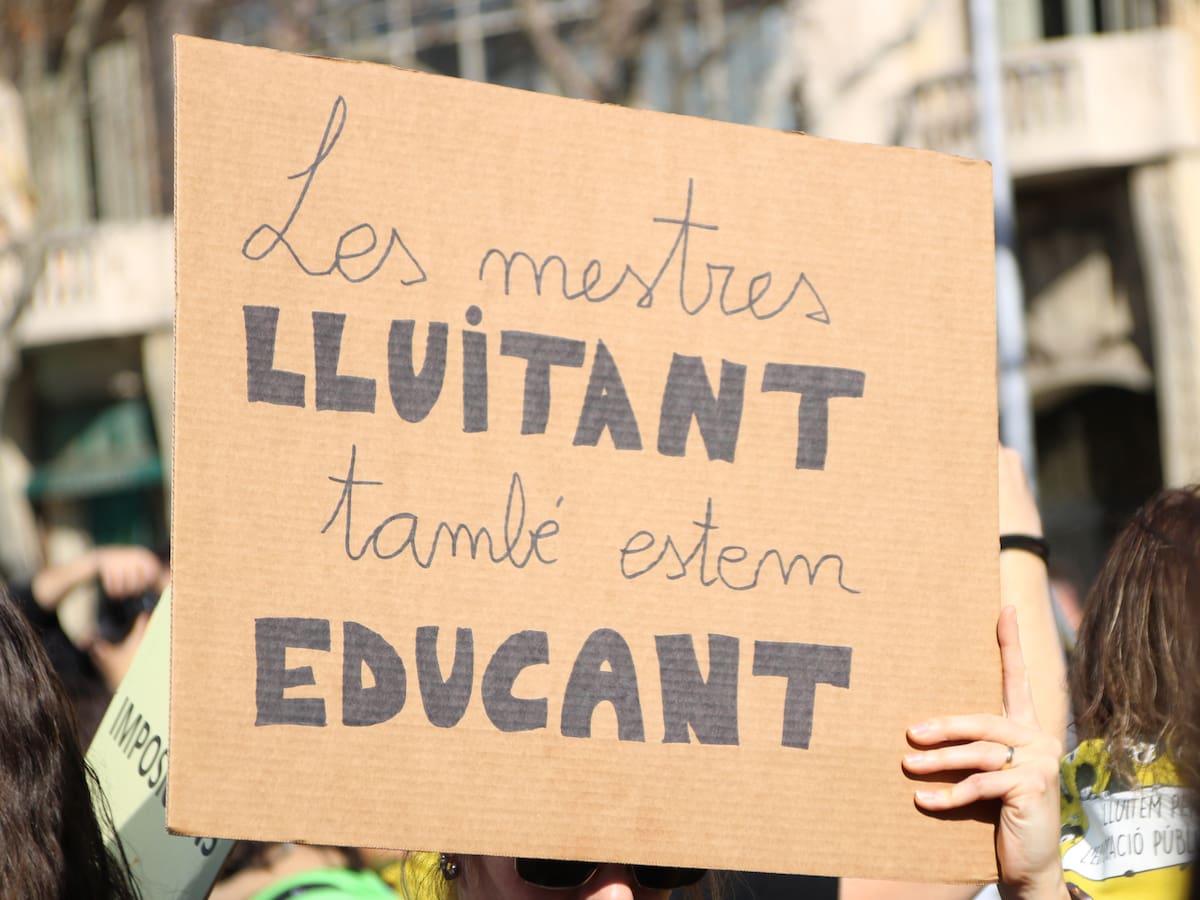 Les mestres
LLUiTANT
també estem
EDUCANT
LLUITEM
PÚBL